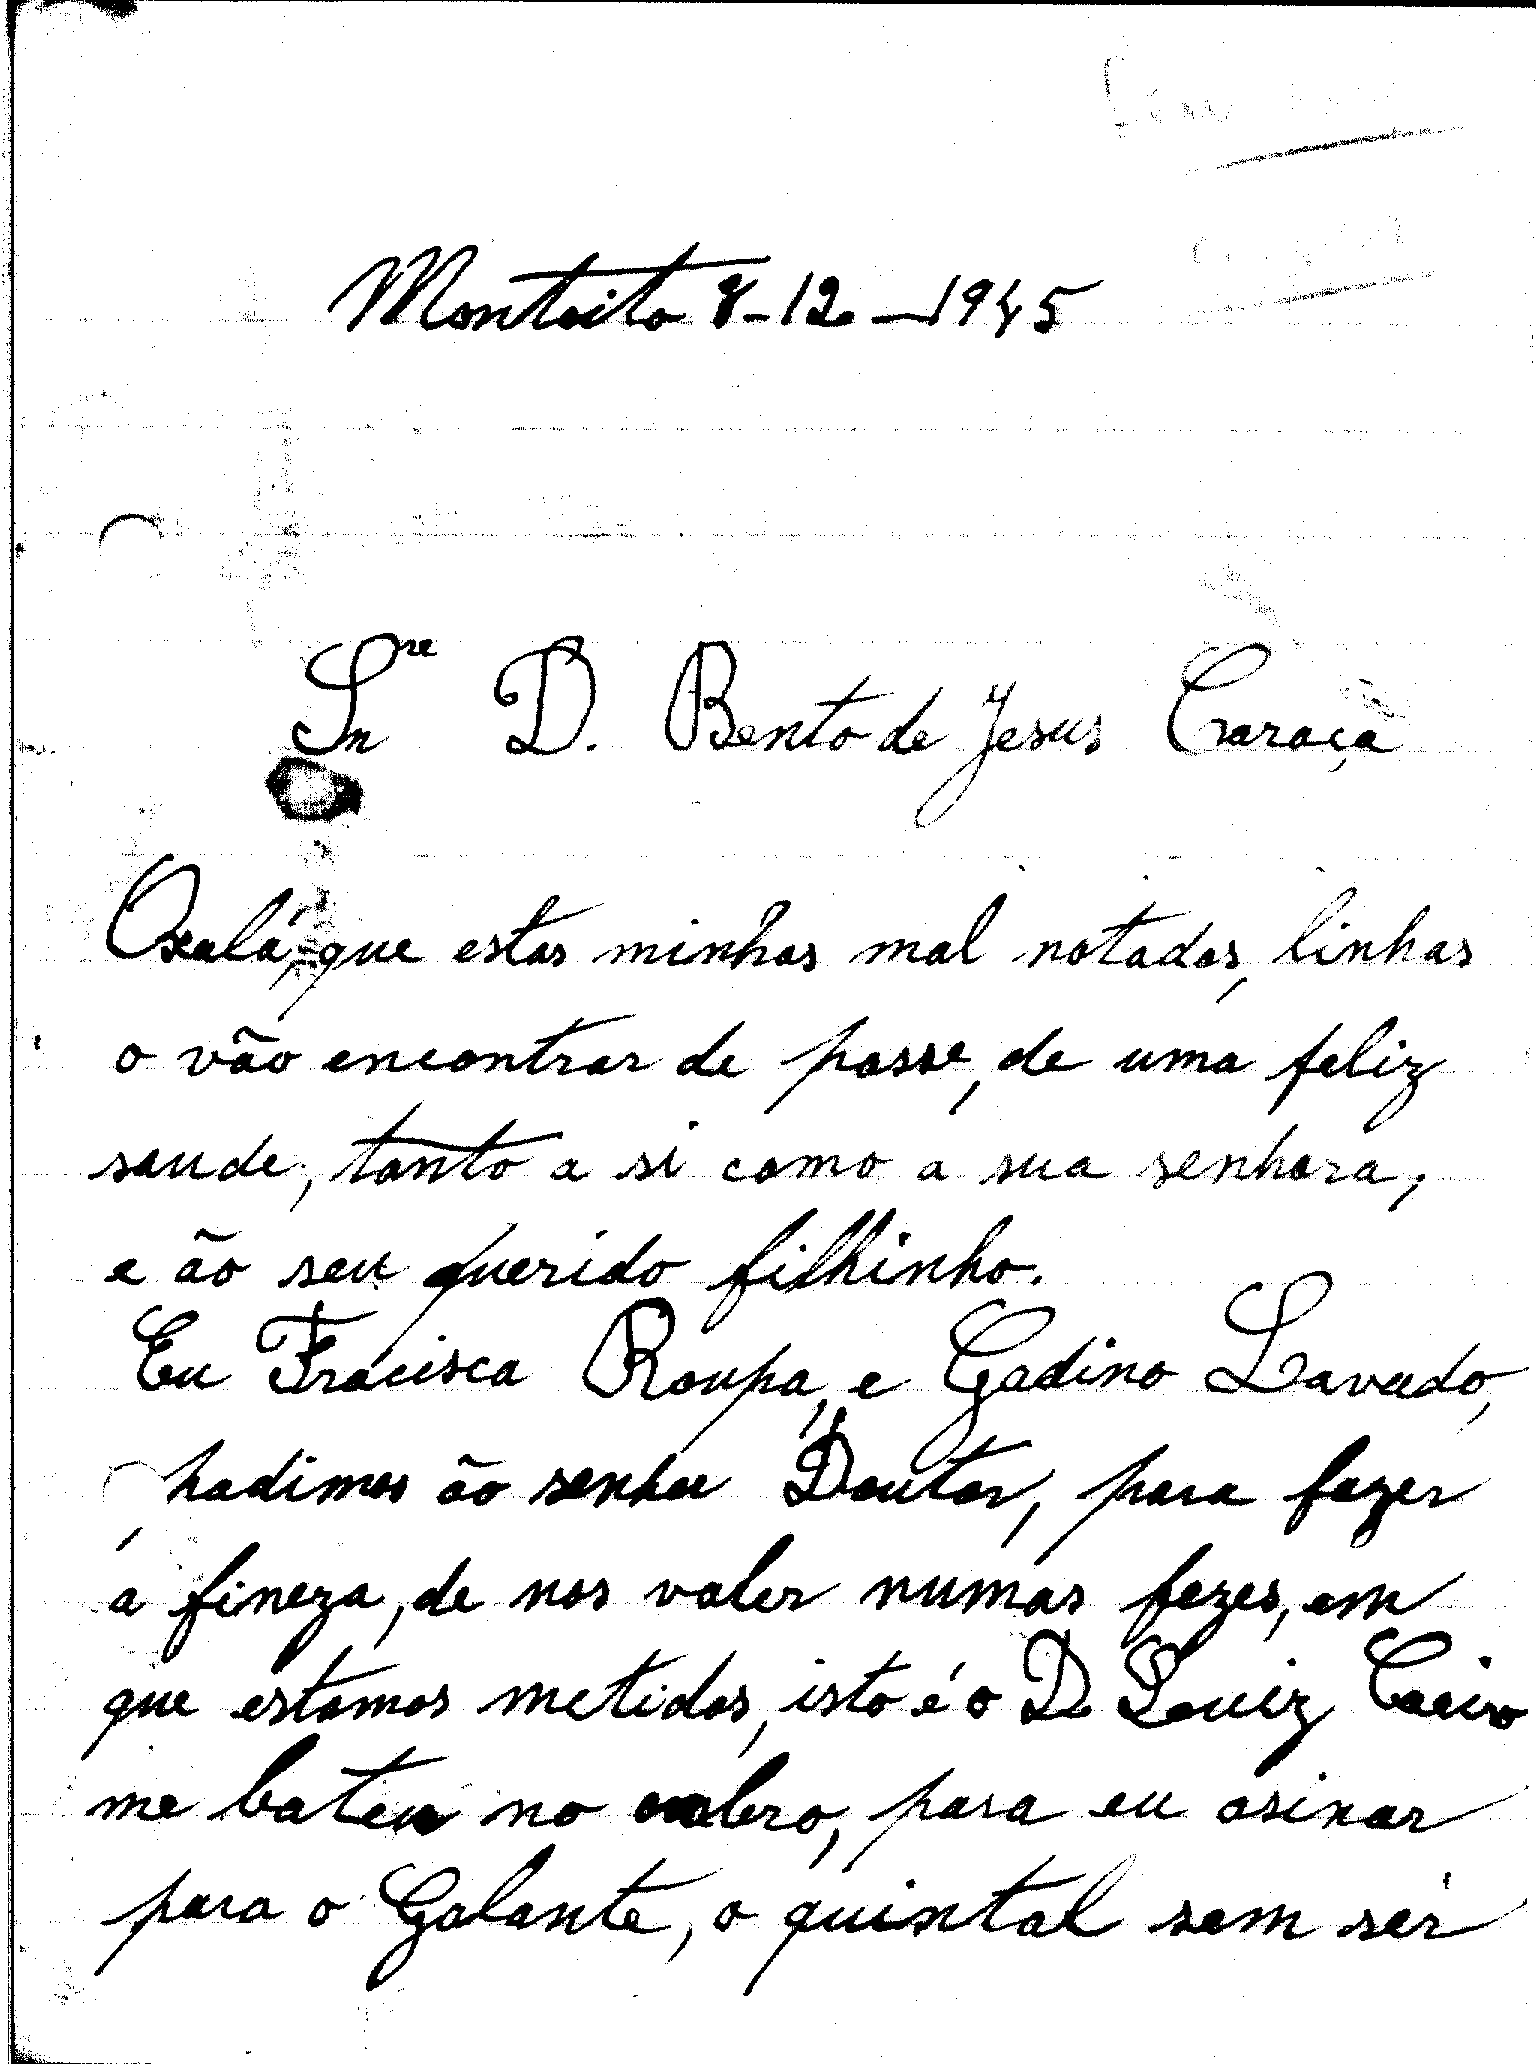 Montoito 8-12-1945
Snre D. Bento de Jesus Caraça
Oxalá, que estas minhas mal notadas, linhas
o vão encontrar de posse, de uma feliz
saude, tanto a si como a sua senhora,
e ão seu querido filhinho.
Eu Fracisca Roupa, e Gadino Lavado,
padimos ão senhor Doutor, para fazer
a fineza, de nos valer numas fezes, em
que estamos metidos, isto é o D. Louiz Caeiro
me bateu no ombro, para eu asinar
para o Galante, o quintal sem ser